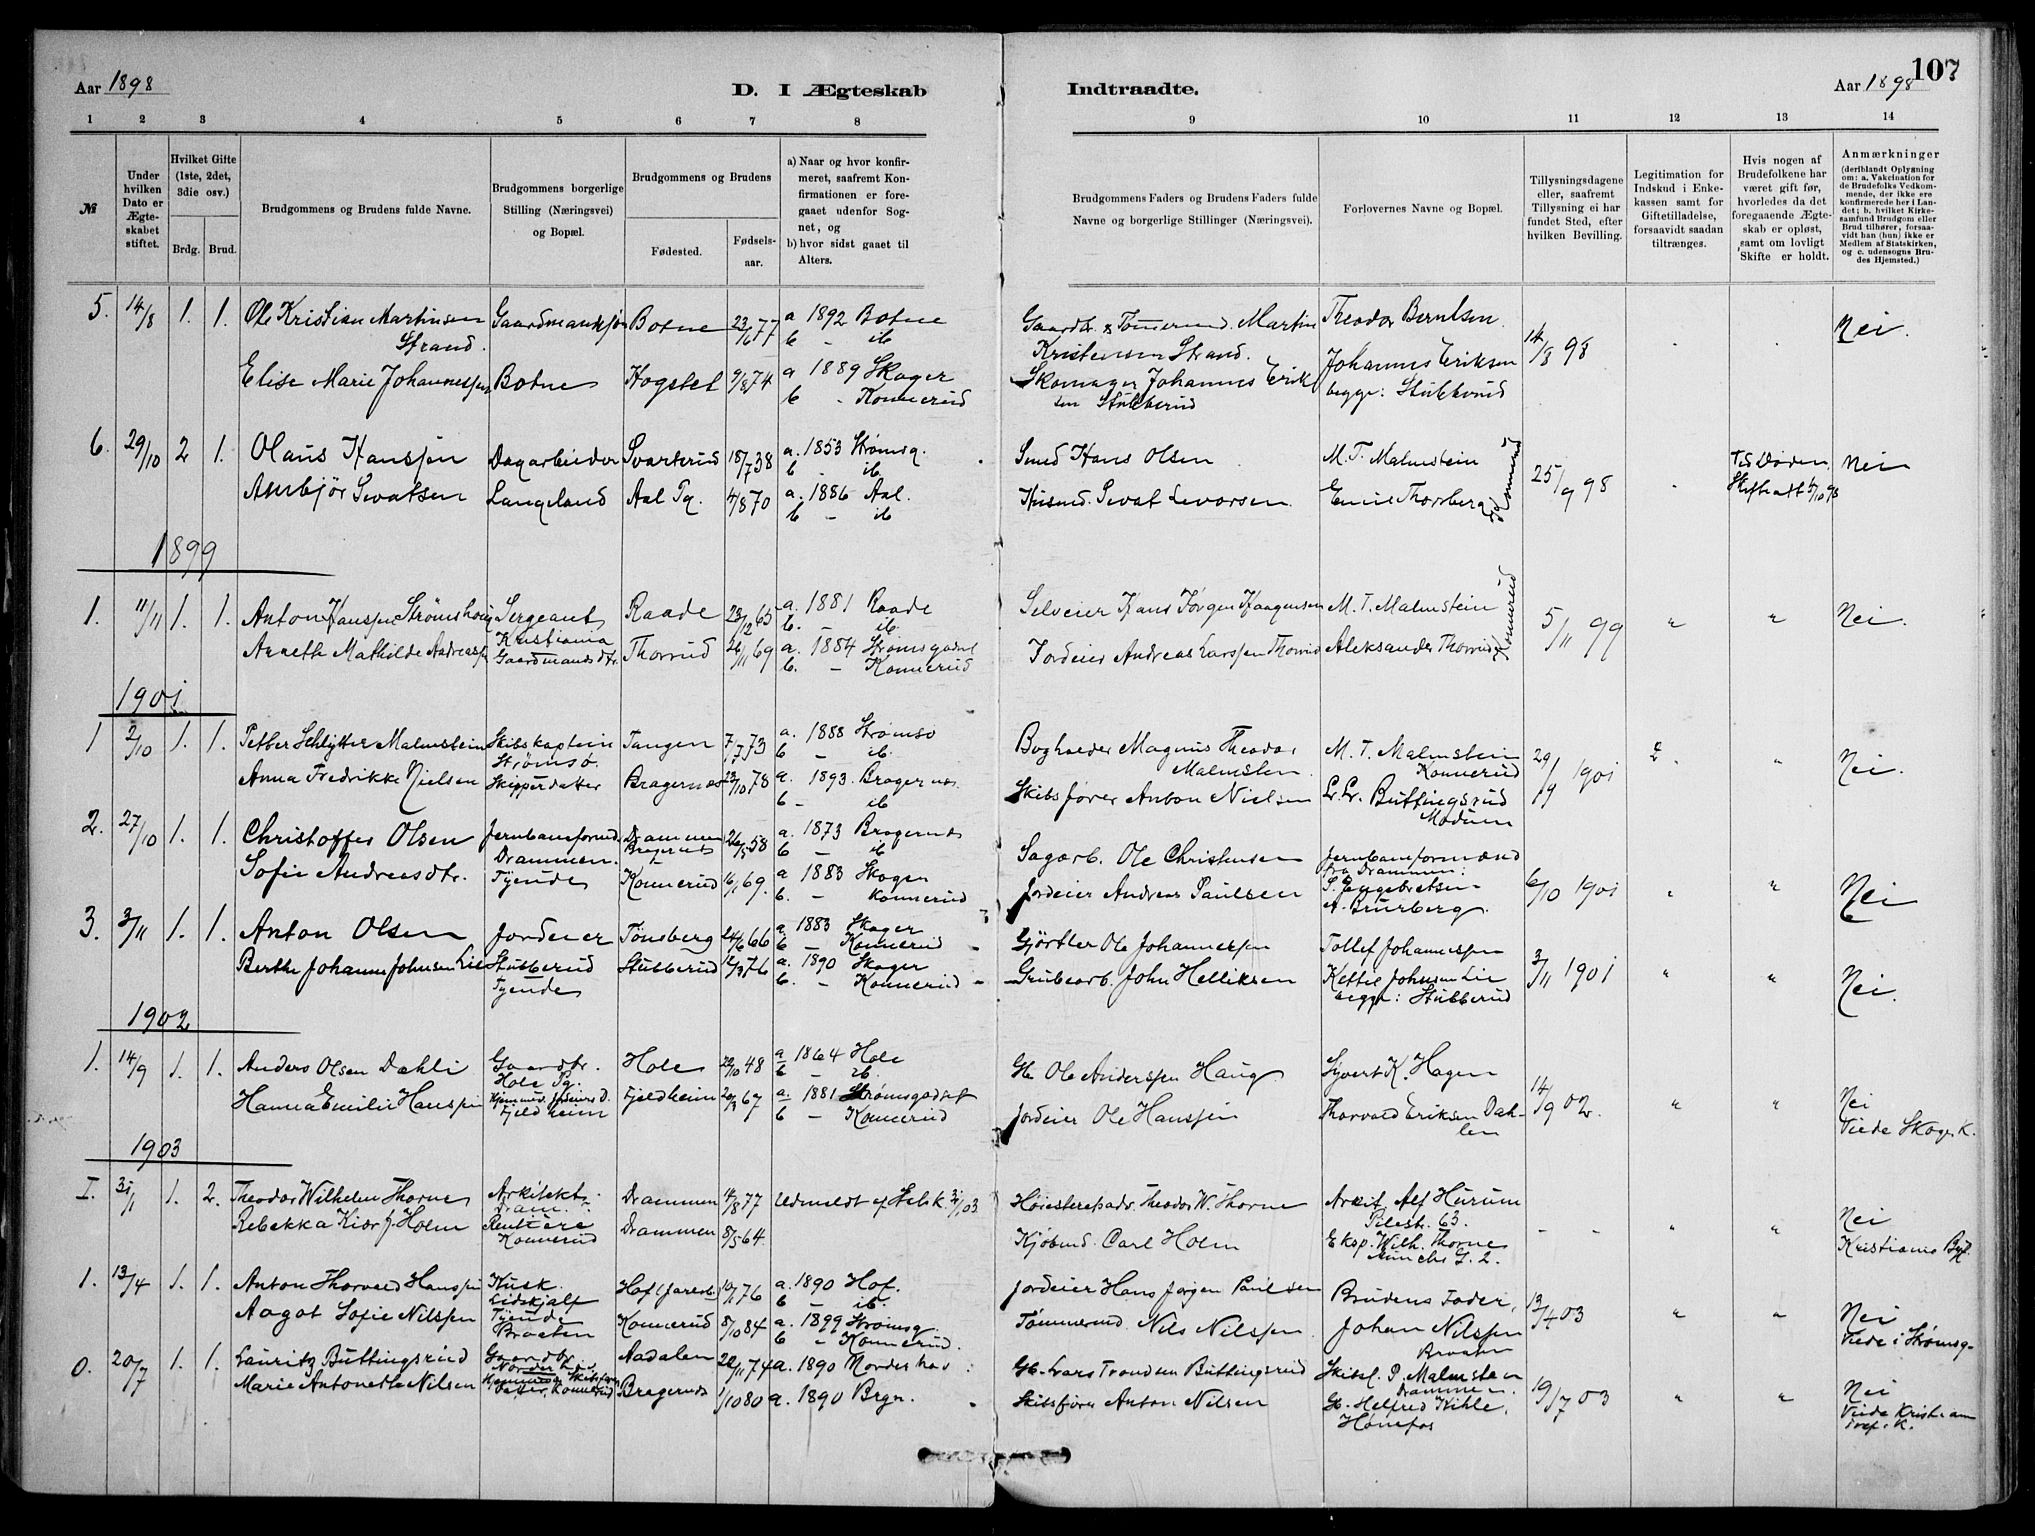 107
Aar 1898 D. I Ægteskab Indtraadte. Aar 1898
1 2 3 4 5 6 7 8 9 10 11 12 13 14
№
Under hvilken Dato er Ægteskabet stiftet.
Hvilket Gifte (1ste, 2det, 3die osv.)
Brdg. Brud.
Brudgommens og Brudens fulde Navne.
Brudgommens borgerlige Stilling (Næringsvei) og Bopæl.
Brudgommens og Brudens
Fødested. Fødsels-aar.
a) Naar og hvor konfirmeret, saafremt Konfirmationen er foregaaet udenfor Sognet, og
b) hvor sidst gaaet til Alters.
Brudgommens Faders og Brudens Faders fulde Navne og borgerlige Stillinger (Næringsvei).
Forlovernes Navne og Bopæl.
Tillysningsdagene eller, saafremt Tillysning ei har fundet Sted, efter hvilken Bevilling.
Legitimation for Indskud i Enkekassen samt for Giftetilladelse, forsaavidt saadan tiltrænges.
Hvis nogen af Brudefolkene har været gift før, hvorledes da det foregaaende Ægteskab er opløst, samt om lovligt Skifte er holdt.
Anmærkninger (deriblandt Oplysning om: a. Vakcination for de Brudefolks Vedkommende, der ikke ere konfirmerede her i Landet; b. hvilket Kirkesamfund Brudgom eller Brud tilhører, forsaavidt han (hun) ikke er Medlem af Statskirken, og c. udensogns Brudes Hjemsted.)
5. 14/8 1. 1. Ole Kristian Martinsen Strand. Botne 23/6 77 a 1892 Botne b - ib Martin Kristensen Strand. Theodor Berntsen 14/8 98 Nei.
Elise Marie Johannesen Botne Hogstet 9/8 74 a 1889 Skoger b - Konnerud Skomager Johannes Eriksen Stubberud Johannes Eriksen begge: Stubberud
6. 29/10 2 1. Olaus Hansen Dagarbeider Svarterud 18/7 38 a. 1853 Strømsg. b - ib Smed Hans Olsen M. T. Malmstein 25/9 98 Ved Døden Nei
Ambjør Sevatsen Langeland Aal Pg. 4/8 70 a. 1886 Aal. b - ib Husmd. Sevat Levorsen Emil Thorsberg Konnerud
1899
1. 11/11 1. 1. Anton Hansen Strømshoug Sergeant Kristiania Raade 23/12 63 a. 1881 Raade b. - ib. Selveier Hans Jørgen Haagensen M. T. Malmstein 5/11 99 " " Nei.
Anneth Mathilde Andreassen Gaardmandsdtr. Thorrud 26/11 69 a. 1884 Strømsgodset b. - Konnerud Jordeier Andreas Larssen Thorrud Aleksander Thorrud Konnerud
1901
1 2/10 1. 1. Petter Schlytter Malmstein Skibskaptein Strømsø. Tangen 7/7 73 a. 1888 Strømsø b - ib. Bogholder Magnus Theodor Malmsten. M. T. Malmstein Konnerud 29/9 1901 " Nei.
Anna Fredrikke Nielsen Skipperdatter Bragernæs 23/10 78 a. 1893. Bragernæs b - ib Skibsfører Anton Nielsen Lr. Lr. Buttingsrud Modum
2. 27/10 1. 1. Christoffer Olsen Jernbaneformd. Drammen. Drammen Bragernæs 26/5 58 a. 1873 Bragernæs b - ib Sagarb. Ole Christensen Jernbaneformænd fra Drammen: 6/10 1901 " " Nei
Sofie Andreasdtr. Tjende Konnerud 16/1 69. a 1883 Skoger b. - Konnerud Jordeier Andreas Paulsen S. Engebretsen A. Brurberg.
3. 3/11 1. 1. Anton Olsen Jordeier Stubberud Tønsberg 24/6 66 a 1883 Skoger b - Konnerud Gjørtler Ole Johannessen Tollef Johannessen 3/11 1901 " " Nei.
Berthe Johanne Johnsen Lie Tjende Stubberud 12/3 76 a. 1890 Skoger b. - Konnerud Grubearb. John Helliksen Kettil Johnsen Lie begge: Stubberud
1902
1. 14/9 1. 1. Anders Olsen Dahli Gaardbr. Hole Pg. Hole 22/10 48 a 1864 Hole b - ib. Gb. Ole Anderssen Haug. Syvert K. Hagen 14/9 02. " " Nei
Hanna Emilie Hanssen Fjeldheim Fjeldheim 20/9 67 a. 1881 Strømsgodset b - Konnerud Jordeier Ole Hanssen Thorvald Eriksen Dahlen Viede Skoger K.
1903
I. 31/1 1. 2. Theodor Wilhelm Thorne Arkitekt. Dram. Drammen 14/8 77 Udmeldt af Statsk. 31/1 03 Høiesteretsadv. Theodor W. Thorne Arkit. Alf Hurum Pilestr. 63. - - " Nei
Rebekka Kiær f. Holm Rentiere Konnerud Drammen 8/5 64. Kjøbmd. Carl Holm Eksp. Wilh. Thorne Munchs G. 2. Kristiania Byf.
1. 13/4 1. 1. Anton Thorvald Hanssen Kusk Lidskjalf Hof (Jarlsb.) 10/1 76 a. 1890 Hof. b - ib. Jordeier Hans Jørgen Paulsen Brudens Fader, 13/4 03 " " Nei
Aagot Sofie Nilssen Tjende Braaten Konnerud 8/10 84 a. 1899 Strømsg. b - Konnerud. Tømmermd. Nils Nilssen. Johan Nilssen Braaten Viede i Strømsg.
0. 20/7 1. 1. Lauritz Buttingsrud Gaardbr. Norderhov Aadalen 22/11 74 a. 1890 Norderhov Gb. Lars Trondsen Buttingsrud Skibsf. P. Malmstein Drammen. 19/7 03 " " Nei
Marie Antonette Nilsen Konnerud Bragernæs 1/10 80 a. 1890 Brgn. Skibsfører Anton Nilsen Gb. Helfred Kihle, Hønefos